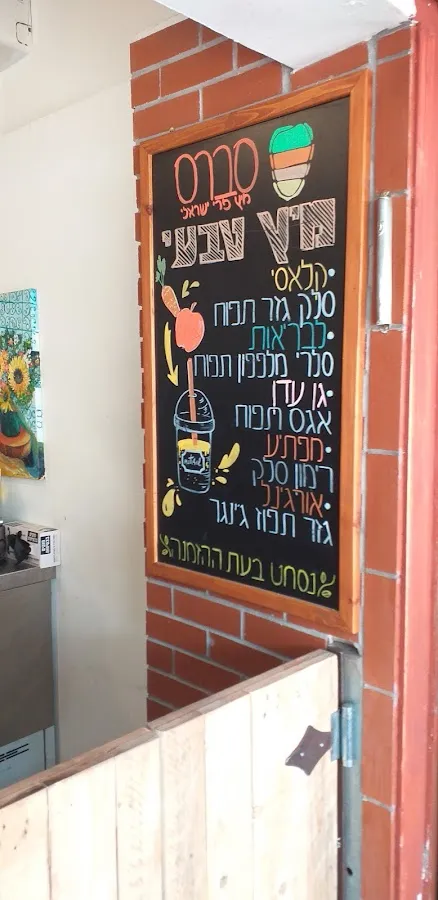 סברס
מיץ פרי ישראלי
מיץ טבעי
•קלאסי
סלק גזר תפוח
•לבריאות
סלרי מלפפון תפוח
•גן עדן
אגס תפוח
•מפתיע
רימון סלק
•אורגינל
גזר תפוז ג'ינגר
נסחט בעת ההזמנה
natural